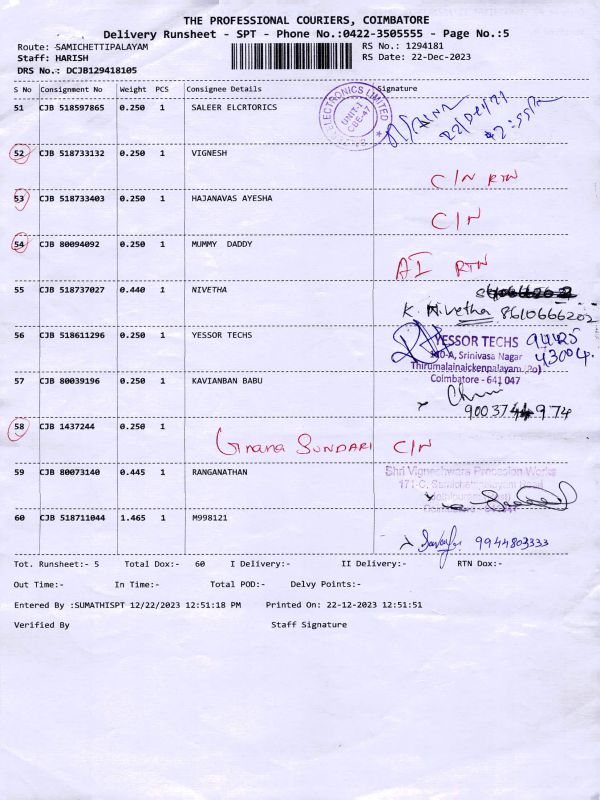 THE PROFESSIONAL COURIERS, COIMBATORE
Delivery Runsheet - SPT - Phone No.:0422-3505555 - Page No.:5
Route: SAMICHETTIPALAYAM RS No.: 1294181
Staff: HARISH RS Date: 22-Dec-2023
DRS No.: DCJB129418105
S No Consignment No Weight PCS Consignee Details Signature
51 CJB 518597865 0.250 1 SALEER ELCRTORICS
ELECTRONICS LIMITED
UNIT-I
CBE-47
52 CJB 518733132 0.250 1 VIGNESH
C/N RTN
53 CJB 518733403 0.250 1 HAJANAVAS AYESHA
C/N
54 CJB 80094092 0.250 1 MUMMY DADDY
AI RTN
55 CJB 518737027 0.440 1 NIVETHA
K. Nivetha 8610666202
56 CJB 518611296 0.250 1 YESSOR TECHS
YESSOR TECHS 94425
Srinivasa Nagar 43004
Thirumalainaickenpalayam (Po)
Coimbatore - 641 047
57 CJB 80039196 0.250 1 KAVIANBAN BABU
58 CJB 1437244 0.250 1
Gnana SUNDARI C/N
59 CJB 80073140 0.445 1 RANGANATHAN
Shri Vigneshwara Precesion Works
171-C,
60 CJB 518711044 1.465 1 M998121
9944803333
Tot. Runsheet:- 5 Total Dox:- 60 I Delivery:- II Delivery:- RTN Dox:-
Out Time:- In Time:- Total POD:- Delvy Points:-
Entered By :SUMATHISPT 12/22/2023 12:51:18 PM Printed On: 22-12-2023 12:51:51
Verified By Staff Signature